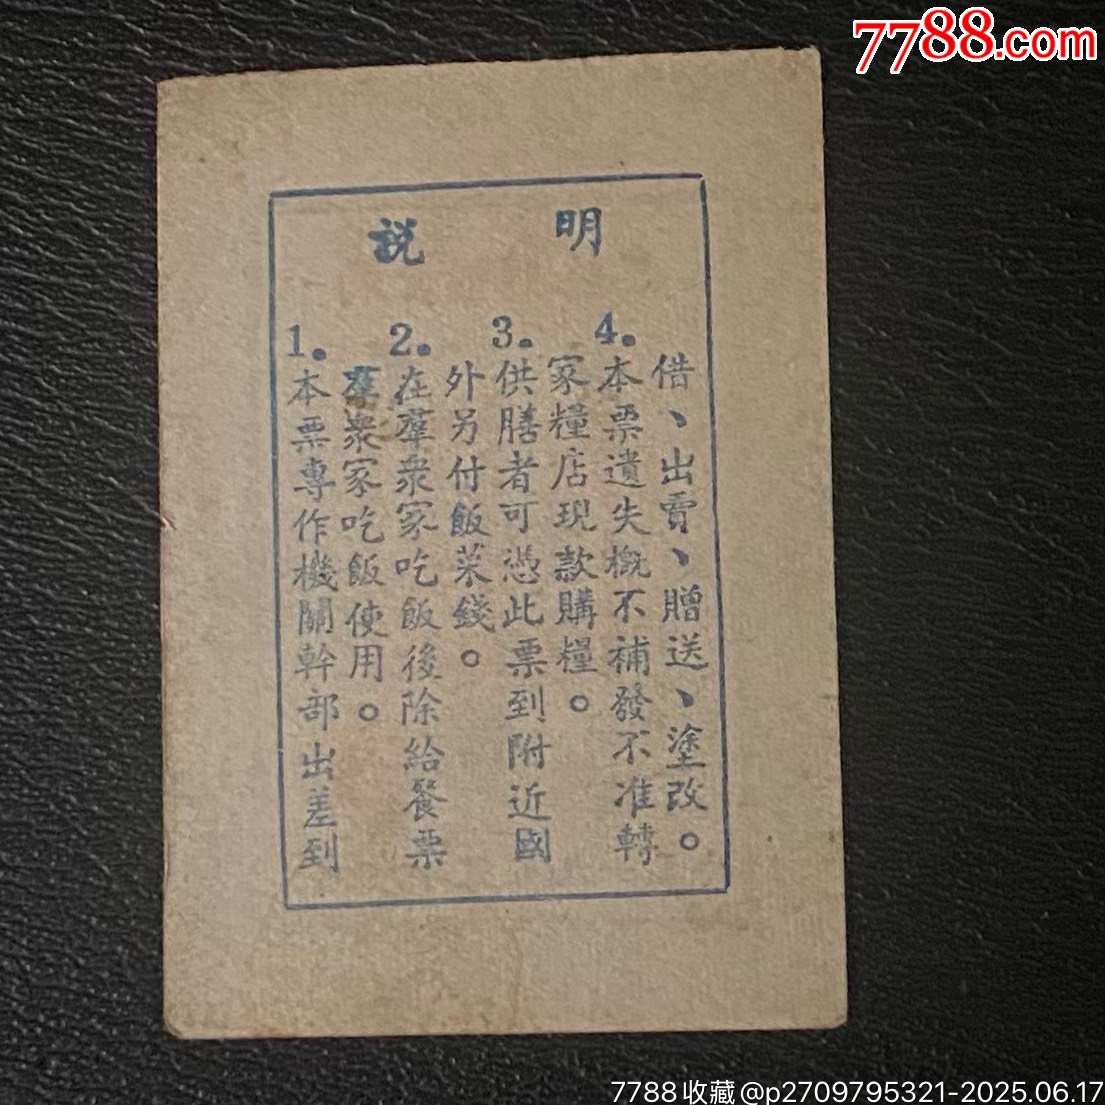 7788.com
説明
1。本票專作機關幹部出差到
羣衆家吃飯使用。
2。在羣衆家吃飯後除給餐票
外另付飯菜錢。
3。供膳者可憑此票到附近國
家糧店現款購糧。
4。本票遺失概不補發不准轉
借、出賣、贈送、塗改。
7788收藏@p2709795321-2025.06.17